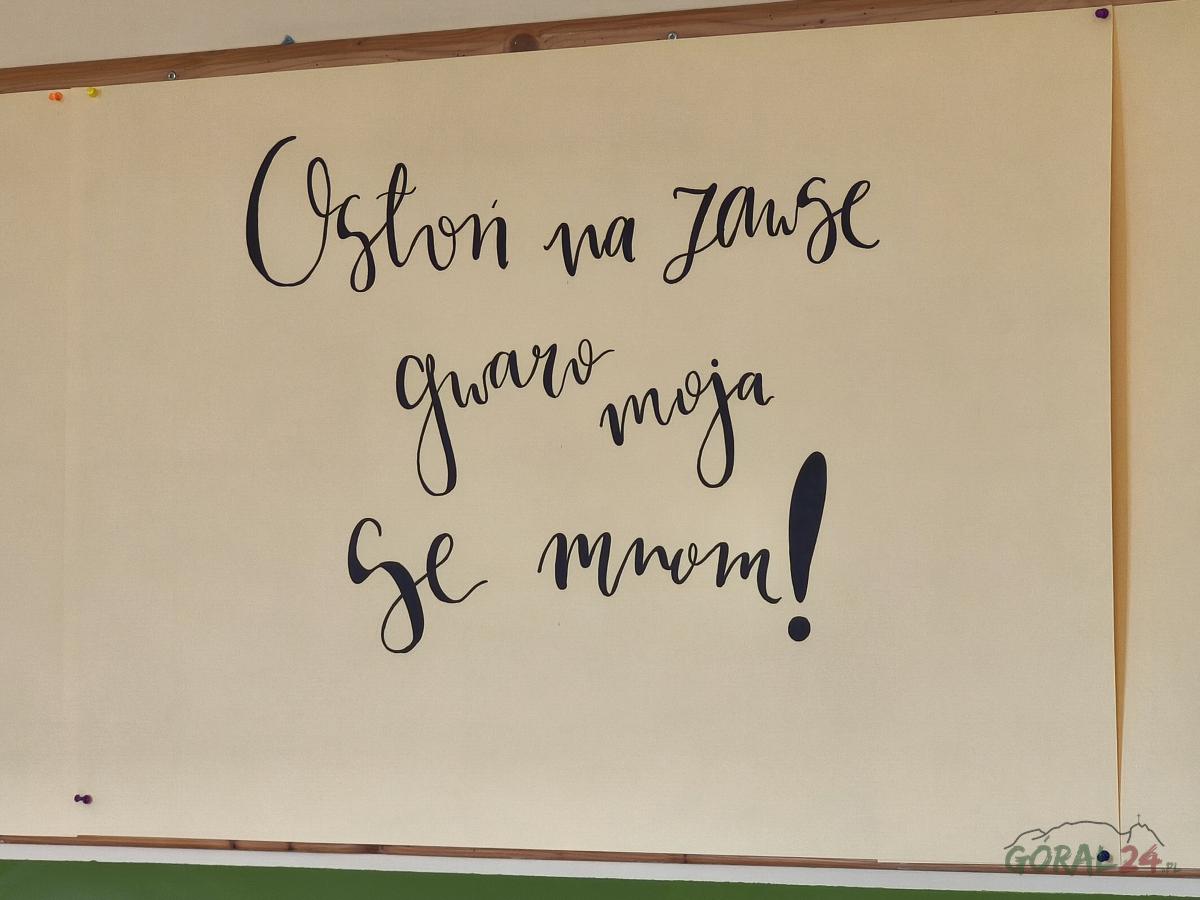 Ostoń na zawse
gwaro moja
se mnom!
GÓRAL24.PL